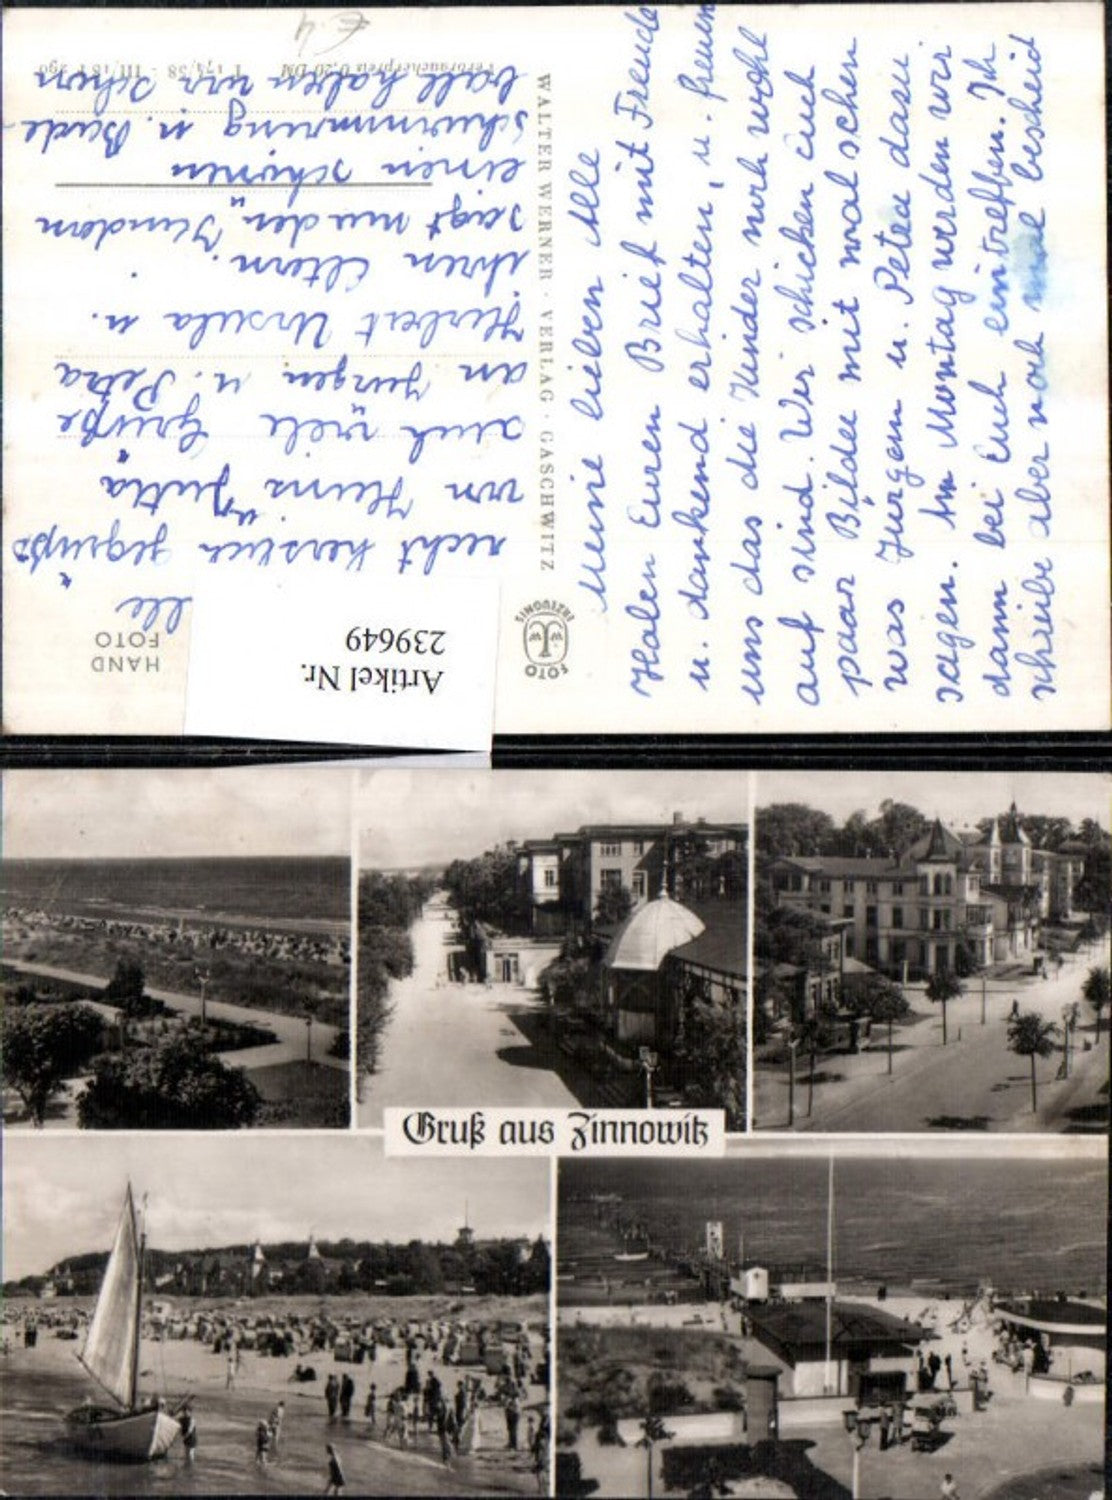 Meine lieben Alle
Haben Euren Brief mit Freude
u. dankend erhalten, u. freuen
uns das die Kinder noch wohl
auf sind. Wir schicken Euch
paar Bilder mit mal sehen
was Jürgen u. Peter dazu
sagen. Am Montag werden wir
dann bei Euch eintreffen. Ich
schreibe aber noch mal bescheid
WALTER WERNER · VERLAG · GASCHWITZ
FOTO
HAND
FOTO
Artikel Nr.
239649
recht herzlich gegrüßt
von Heinz Jutta
auch viele Grüße
an Jürgen u. Petra
Herbert Ursula u.
ihren Eltern.
einen schönen
bald haben wir schon
Verbraucherpreis 0,20 DM
T 174/58 - III/18 F 290
Gruß aus Zinnowitz